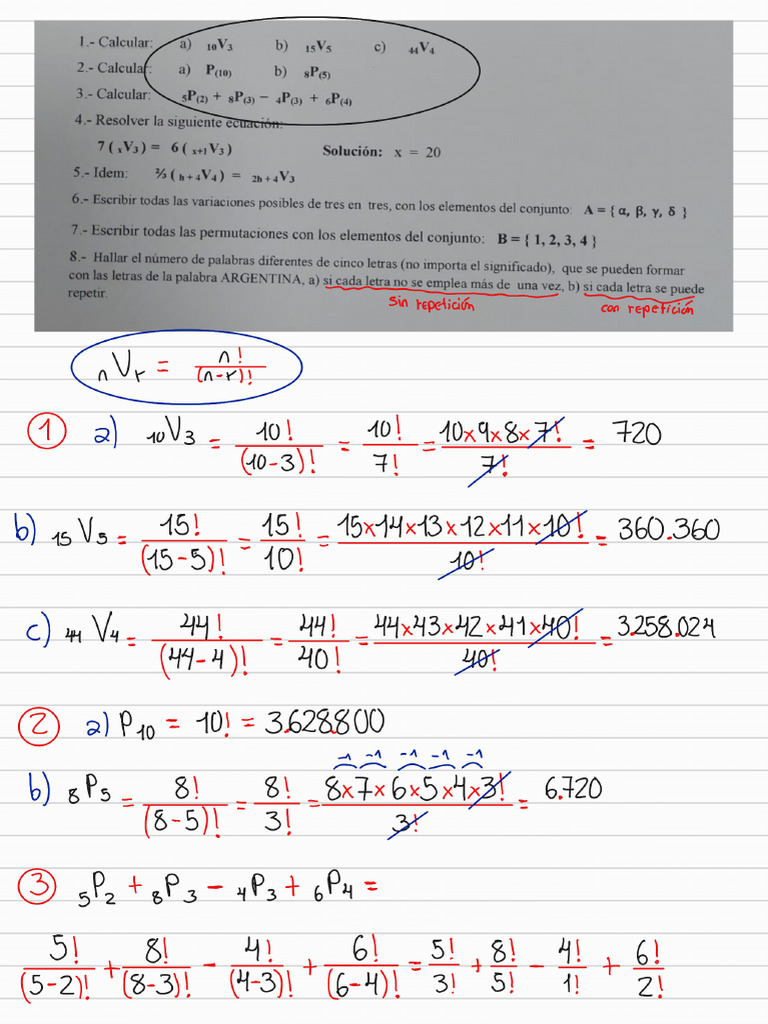 1.- Calcular: a) ₁₀V₃ b) ₁₅V₅ c) ₄₄V₄
2.- Calcular: a) P₍₁₀₎ b) ₈P₍₅₎
3.- Calcular: ₅P₍₂₎ + ₈P₍₃₎ − ₄P₍₃₎ + ₆P₍₄₎
4.- Resolver la siguiente ecuación:
7 ( ₓV₃ ) = 6 ( ₓ₊₁V₃ ) Solución: x = 20
5.- Idem: ⅔ ( ₕ₊₄V₄ ) = ₂ₕ₊₄V₃
6.- Escribir todas las variaciones posibles de tres en tres, con los elementos del conjunto: A = { α, β, γ, δ }
7.- Escribir todas las permutaciones con los elementos del conjunto: B = { 1, 2, 3, 4 }
8.- Hallar el número de palabras diferentes de cinco letras (no importa el significado), que se pueden formar
con las letras de la palabra ARGENTINA, a) si cada letra no se emplea más de una vez, b) si cada letra se puede
repetir.
sin repetición con repetición
ₙVᵣ = n! / (n-r)!
① a) ₁₀V₃ = 10! / (10-3)! = 10! / 7! = 10x9x8x7! / 7! = 720
b) ₁₅V₅ = 15! / (15-5)! = 15! / 10! = 15x14x13x12x11x10! / 10! = 360.360
c) ₄₄V₄ = 44! / (44-4)! = 44! / 40! = 44x43x42x41x40! / 40! = 3.258.024
② a) P₁₀ = 10! = 3.628.800
-1 -1 -1 -1 -1
b) ₈P₅ = 8! / (8-5)! = 8! / 3! = 8x7x6x5x4x3! / 3! = 6.720
③ ₅P₂ + ₈P₃ - ₄P₃ + ₆P₄ =
5! / (5-2)! + 8! / (8-3)! - 4! / (4-3)! + 6! / (6-4)! = 5! / 3! + 8! / 5! - 4! / 1! + 6! / 2!